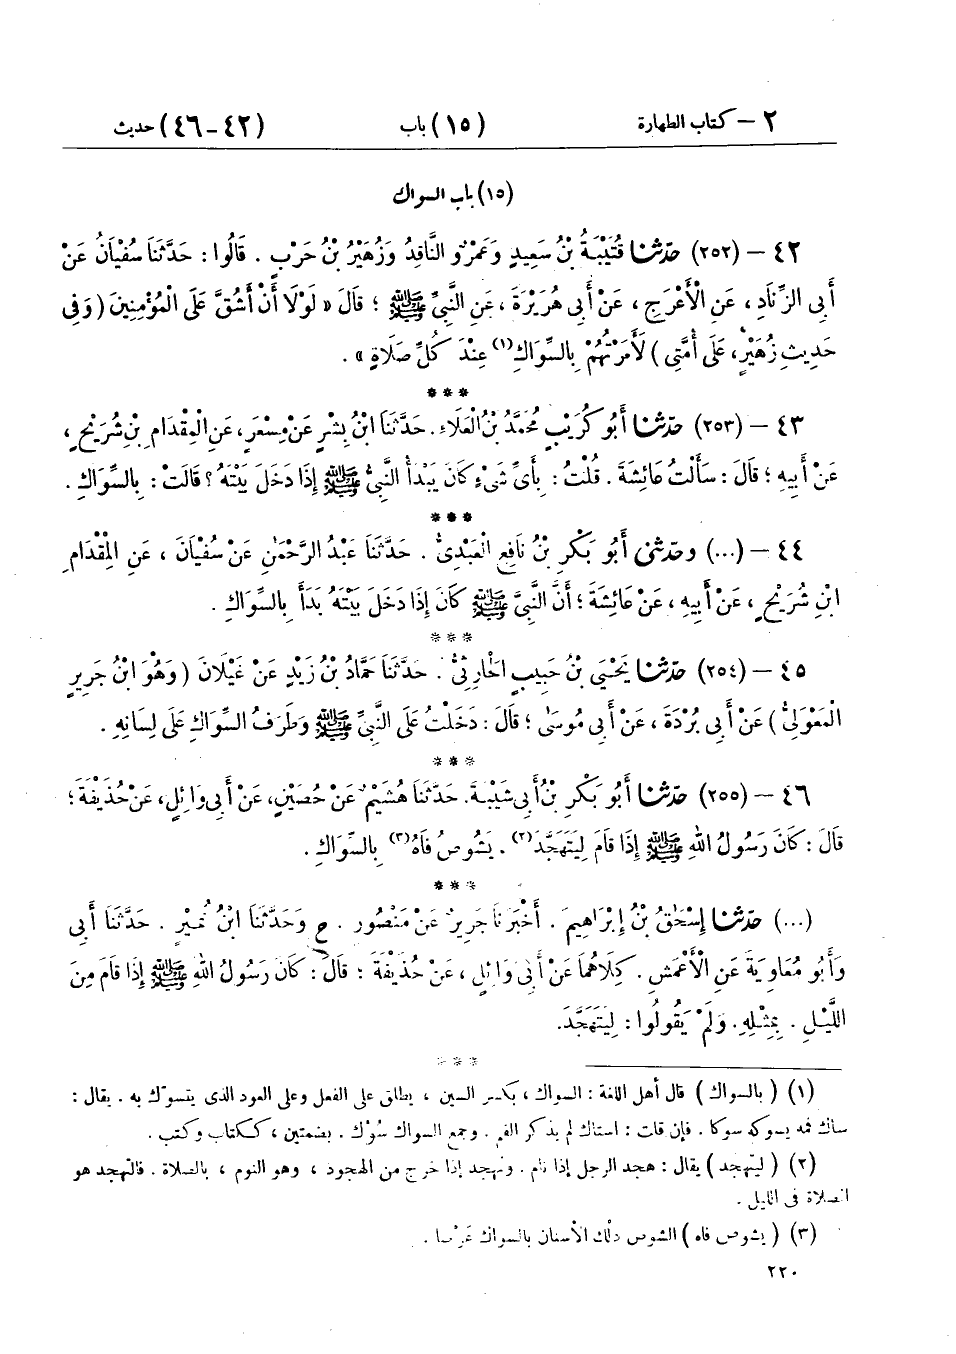 ٢ – كتاب الطهارة (١٥) باب (٤٢–٤٦) حديث
(١٥) باب السواك
٤٢ – (٢٥٢) حَدَّثَنَا قُتَيْبَةُ بْنُ سَعِيدٍ وَعَمْرٌو النَّاقِدُ وَزُهَيْرُ بْنُ حَرْبٍ . قَالُوا : حَدَّثَنَا سُفْيَانُ عَنْ
أَبِي الزِّنَادِ ، عَنِ الْأَعْرَجِ ، عَنْ أَبِي هُرَيْرَةَ ، عَنِ النَّبِيِّ ﷺ ؛ قَالَ « لَوْلَا أَنْ أَشُقَّ عَلَى الْمُؤْمِنِينَ ( وَفِي
حَدِيثِ زُهَيْرٍ ، عَلَى أُمَّتِي ) لَأَمَرْتُهُمْ بِالسِّوَاكِ(١) عِنْدَ كُلِّ صَلَاةٍ » .
* * *
٤٣ – (٢٥٣) حَدَّثَنَا أَبُو كُرَيْبٍ مُحَمَّدُ بْنُ الْعَلَاءِ . حَدَّثَنَا ابْنُ بِشْرٍ عَنْ مِسْعَرٍ ، عَنِ الْمِقْدَامِ بْنِ شُرَيْحٍ ،
عَنْ أَبِيهِ ؛ قَالَ : سَأَلْتُ عَائِشَةَ . قُلْتُ : بِأَيِّ شَيْءٍ كَانَ يَبْدَأُ النَّبِيُّ ﷺ إِذَا دَخَلَ بَيْتَهُ ؟ قَالَتْ : بِالسِّوَاكِ .
* * *
٤٤ – (...) وَحَدَّثَنِي أَبُو بَكْرِ بْنُ نَافِعٍ الْعَبْدِيُّ . حَدَّثَنَا عَبْدُ الرَّحْمَٰنِ عَنْ سُفْيَانَ ، عَنِ الْمِقْدَامِ
ابْنِ شُرَيْحٍ ، عَنْ أَبِيهِ ، عَنْ عَائِشَةَ ؛ أَنَّ النَّبِيَّ ﷺ كَانَ إِذَا دَخَلَ بَيْتَهُ بَدَأَ بِالسِّوَاكِ .
* * *
٤٥ – (٢٥٤) حَدَّثَنَا يَحْيَى بْنُ حَبِيبٍ الْحَارِثِيُّ . حَدَّثَنَا حَمَّادُ بْنُ زَيْدٍ عَنْ غَيْلَانَ ( وَهُوَ ابْنُ جَرِيرٍ
الْمَعْوَلِيُّ ) عَنْ أَبِي بُرْدَةَ ، عَنْ أَبِي مُوسَى ؛ قَالَ : دَخَلْتُ عَلَى النَّبِيِّ ﷺ وَطَرَفُ السِّوَاكِ عَلَى لِسَانِهِ .
* * *
٤٦ – (٢٥٥) حَدَّثَنَا أَبُو بَكْرِ بْنُ أَبِي شَيْبَةَ . حَدَّثَنَا هُشَيْمٌ عَنْ حُصَيْنٍ ، عَنْ أَبِي وَائِلٍ ، عَنْ حُذَيْفَةَ ؛
قَالَ : كَانَ رَسُولُ اللهِ ﷺ إِذَا قَامَ لِيَتَهَجَّدَ(٢) . يَشُوصُ فَاهُ(٣) بِالسِّوَاكِ .
* * *
(...) حَدَّثَنَا إِسْحَقُ بْنُ إِبْرَاهِيمَ . أَخْبَرَنَا جَرِيرٌ عَنْ مَنْصُورٍ . ح وَحَدَّثَنَا ابْنُ نُمَيْرٍ . حَدَّثَنَا أَبِي
وَأَبُو مُعَاوِيَةَ عَنِ الْأَعْمَشِ . كِلَاهُمَا عَنْ أَبِي وَائِلٍ ، عَنْ حُذَيْفَةَ ؛ قَالَ : كَانَ رَسُولُ اللهِ ﷺ إِذَا قَامَ مِنَ
اللَّيْلِ . بِمِثْلِهِ . وَلَمْ يَقُولُوا : لِيَتَهَجَّدَ.
* * *
(١) ( بالسواك ) قال أهل اللغة : السواك ، بكسر السين ، يطلق على الفعل وعلى العود الذى يتسوك به . يقال :
ساك فمه يسوكه سوكا . فإن قلت : استاك لم يذكر الفم . وجمع السواك سُوُك . بضمتين ، ككتاب وكتب .
(٢) ( ليتهجد ) يقال : هجد الرجل إذا نام . وتهجد إذا خرج من الهجود ، وهو النوم ، بالصلاة . فالتهجد هو
الصلاة فى الليل .
(٣) ( يشوص فاه ) الشوص دلْك الأسنان بالسواك عَرْضا .
٢٢٠